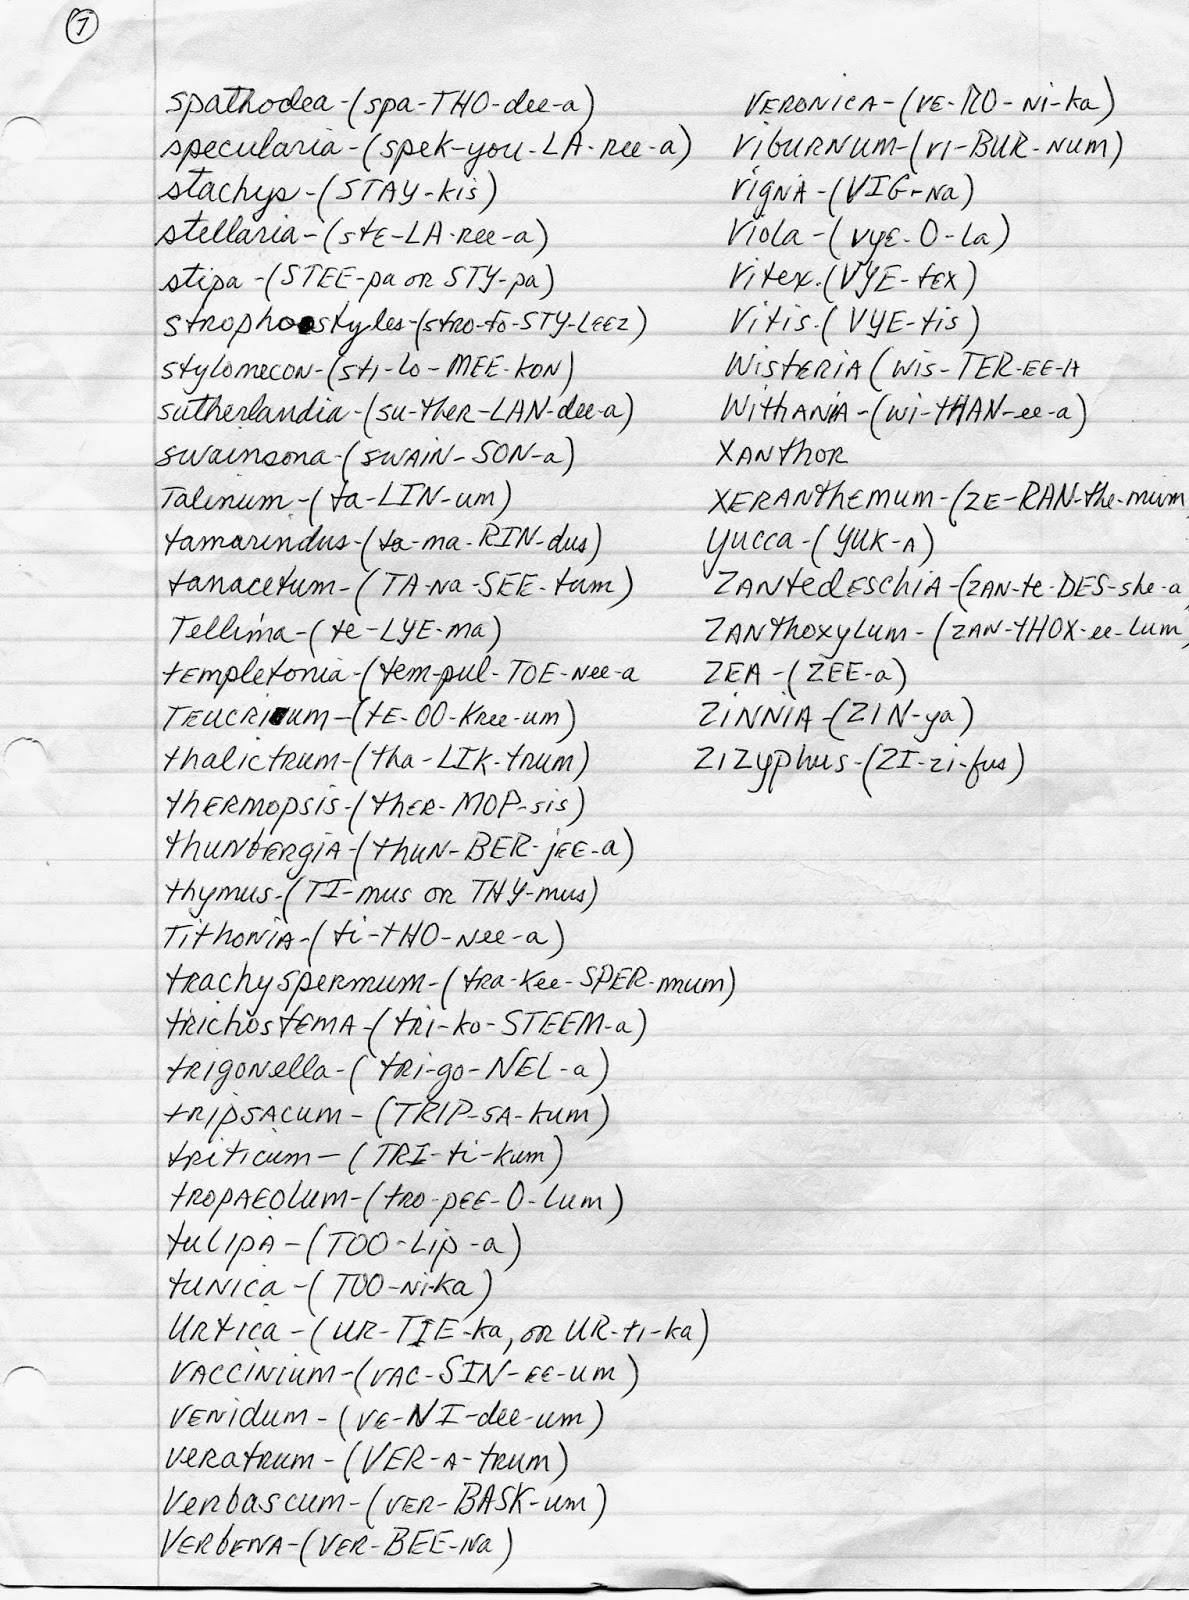 7
spathodea-(spa-THO-dee-a)
specularia-(spek-you-LA-ree-a)
stachys-(STAY-kis)
stellaria-(stE-LA-ree-a)
stipa-(STEE-pa or STY-pa)
strophostyles-(stro-fo-STY-LEEZ)
stylomecon-(sti-lo-MEE-kon)
sutherlandia-(su-ther-LAN-dee-a)
swainsona-(swAIN-SON-a)
Talinum-(ta-LIN-um)
tamarindus-(ta-ma-RIN-dus)
tanacetum-(TA-Na-SEE-tum)
Tellima-(te-LYE-ma)
templetonia-(tem-pul-TOE-Nee-a
TEUCRIum-(tE-OO-Kree-um)
thalictrum-(tha-LIK-trum)
thERmopsis-(thER-MOP-sis)
thuNbERgiA-(thuN-BER-jEE-a)
thymus-(TI-mus or THY-mus)
TithoNiA-(ti-tHO-Nee-a)
trachyspermum-(tra-Kee-SPER-mum)
trichostEMA-(tri-ko-STEEM-a)
trigoNella-(tri-go-NEL-a)
tripsAcum-(TRIP-sA-kum)
triticum-(TRI-ti-kum)
tROPAEOlum-(tro-pEE-O-lum)
tuLIpA-(TOO-Lip-a)
tuNica-(TOO-Ni-ka)
URtica-(UR-TIE-ka, or UR-ti-ka)
VACCiNium-(VAC-SIN-EE-um)
VENidum-(VE-NI-dee-um)
VERatrum-(VER-A-trum)
Verbascum-(VER-BASK-um)
VERbENA-(VER-BEE-Na)
VERONICA-(VE-RO-Ni-ka)
ViBURNUM-(Vi-BUR-NUM)
VigNA-(VIG-Na)
Viola-(VyE-O-La)
Vitex-(VYE-tEX)
Vitis-(VYE-tis)
WistERiA (Wis-TER-EE-A
WithANiA-(Wi-tHAN-ee-a)
XANthOR
XERANthEMum-(ZE-RAN-the-mum
YUCCa-(YUK-A)
ZANtEdEschiA-(ZAN-te-DES-she-a
ZANthoxylum-(ZAN-tHOX-ee-Lum)
ZEA-(ZEE-a)
ZiNNiA-(ZIN-ya)
ZiZyphus-(ZI-zi-fus)